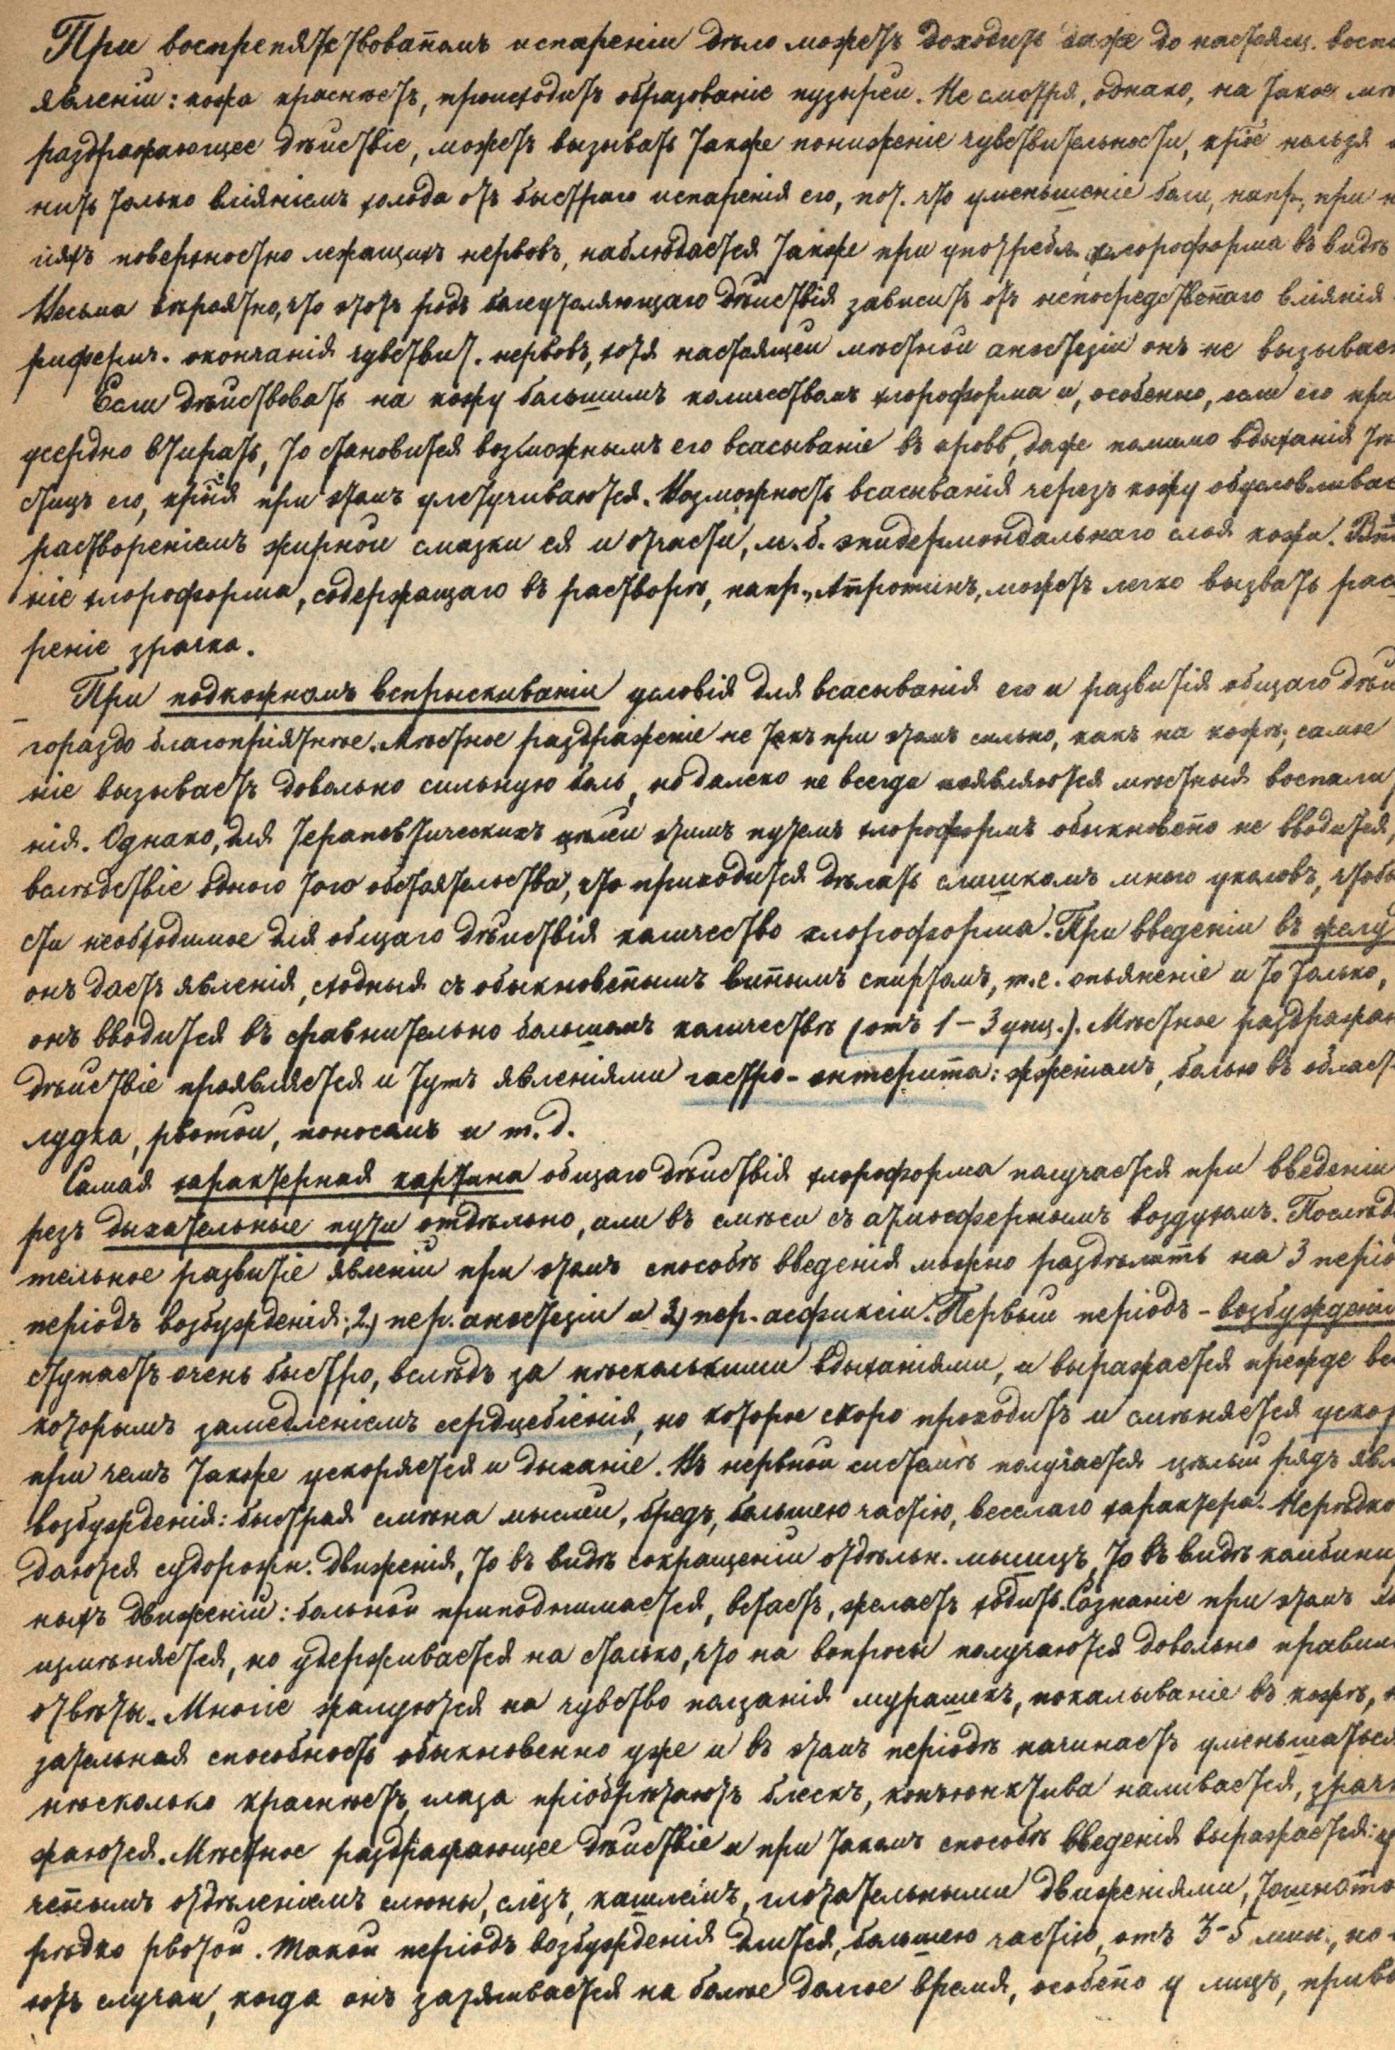 При воспрепятствованномъ испареніи дѣло можетъ доходить даже до настоящ. воспа
явленій: кожа краснѣетъ, происходитъ образованіе пузырей. Не смотря, однако, на такое мѣ
раздражающее дѣйствіе, можетъ вызывать также пониженіе чувствительности, крое нельзя
нить только вліяніемъ холода отъ быстраго испаренія его, пот. что уменьшеніе боли, напр., при н
іяхъ поверхностно лежащихъ нервовъ, наблюдается также при употребл. хлороформа въ видѣ
Весьма вѣроятно, что этотъ родъ болеутоляющаго дѣйствія зависитъ отъ непосредственнаго вліянія
риферич. окончанія чувствит. нервовъ, хотя настоящей мѣстной анестезіи онъ не вызывае
Если дѣйствовать на кожу большимъ количествомъ хлороформа и, особенно, если его при
усердно втирать, то становится возможнымъ его всасываніе въ кровь, даже помимо вдыханія тѣ
стицъ его, крыя при этомъ улетучиваются. Возможность всасыванія черезъ кожу обусловливае
раствореніемъ жирной смазки ея и отчасти, м. б. эпидермоидальнаго слоя кожи. Вти
ніе хлороформа, содержащаго въ растворѣ, напр., Атропинъ, можетъ легко вызвать рас
реніе зрачка.
При подкожномъ вспрыскиваніи условія для всасыванія его и развитія общаго дѣй
гораздо благопріятнѣе. Мѣстное раздраженіе не такъ при этомъ сильно, какъ на кожѣ; самое
ніе вызываетъ довольно сильную боль, но далеко не всегда появляются мѣстныя воспали
нія. Однако, для терапевтическихъ цѣлей этимъ путемъ хлороформъ обыкновенно не вводится,
вслѣдствіе одного того обстоятельства, что приходится дѣлать слишкомъ много уколовъ, чтобы
сти необходимое для общаго дѣйствія количество хлороформа. При введеніи въ желу
онъ даетъ явленія, сходныя съ обыкновеннымъ виннымъ спиртомъ, т. е. опьяненіе и то только,
онъ вводится въ сравнительно большомъ количествѣ (отъ 1 – 3 унц.). Мѣстное раздражаю
дѣйствіе проявляется и тутъ явленіями гастро-энтерита: жженіемъ, болью въ област
лудка, рвотой, поносомъ и т. д.
Самая характерная картина общаго дѣйствія хлороформа получается при введеніи
резъ дыхательные пути отдѣльно, или въ смѣси съ атмосфернымъ воздухомъ. Послѣдо
тельное развитіе явленій при этомъ способѣ введенія можно раздѣлить на 3 періо
періодъ возбужденія; 2) пер. анестезіи и 3) пер. асфиксіи. Первый періодъ – возбужденія
ступаетъ очень быстро, вслѣдъ за нѣсколькими вдыханіями, и выражается прежде все
которымъ замедленіемъ сердцебіенія, но которое скоро проходитъ и смѣняется ускор
при чемъ также ускоряется и дыханіе. Въ нервной системѣ получается цѣлый рядъ явл
возбужденія: быстрая смѣна мыслей, бредъ, большею частію, веселаго характера. Нерѣдко
даются судорожн. движенія, то въ видѣ сокращеній отдѣльн. мышцъ, то въ видѣ комбини
ныхъ движеній: больной приподнимается, встаетъ, желаетъ ходить. Сознаніе при этомъ
измѣняется, но удерживается на столько, что на вопросы получаются довольно правил
отвѣты. Многіе жалуются на чувство ползанія мурашекъ, покалываніе въ кожѣ,
зательная способность обыкновенно уже и въ этомъ періодѣ начинаетъ уменьшаться
нѣсколько краснѣетъ, глаза пріобрѣтаютъ блескъ, конъюнктива наливается, зрачк
жаются. Мѣстное раздражающее дѣйствіе и при такомъ способѣ введенія выражается:
ченнымъ отдѣленіемъ слюны, слезъ, кашлемъ, глотательными движеніями, тошното
рѣдко рвотой. Такой періодъ возбужденія длится, большею частію, отъ 3-5 мин., но
ютъ случаи, когда онъ затягивается на болѣе долгое время, особенно у лицъ, привы